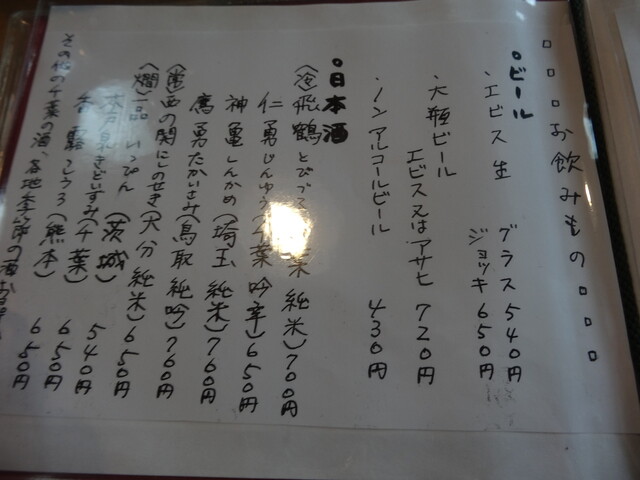 ○○○お飲みもの○○○
○ビール
・エビス生 グラス 540円
ジョッキ 650円
大瓶ビール
エビス又はアサヒ 720円
・ノンアルコールビール 430円
○日本酒
(冷)飛鶴 とびづる 純米)700円
仁勇 じんゆう(千葉 吟辛)650円
神亀 しんかめ(埼玉 純米)760円
鷹勇 たかいさみ(鳥取 純吟)760円
西の関 にしのせき(大分 純米)650円
(燗)一品 いっぴん(茨城)540円
木戸泉 きどいずみ(千葉)650円
香露 こうろ(熊本)650円
その他の千葉の酒、各地季節の酒